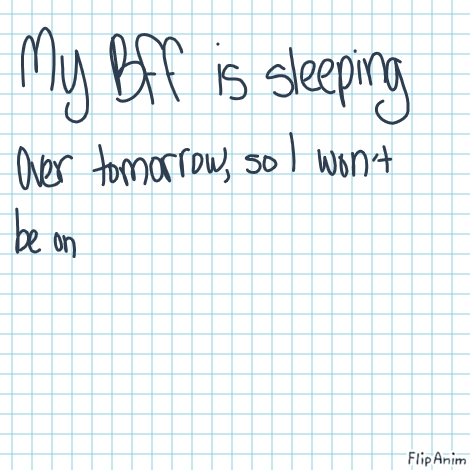 My Bff is sleeping
over tomorrow, so I won't
be on
FlipAnim